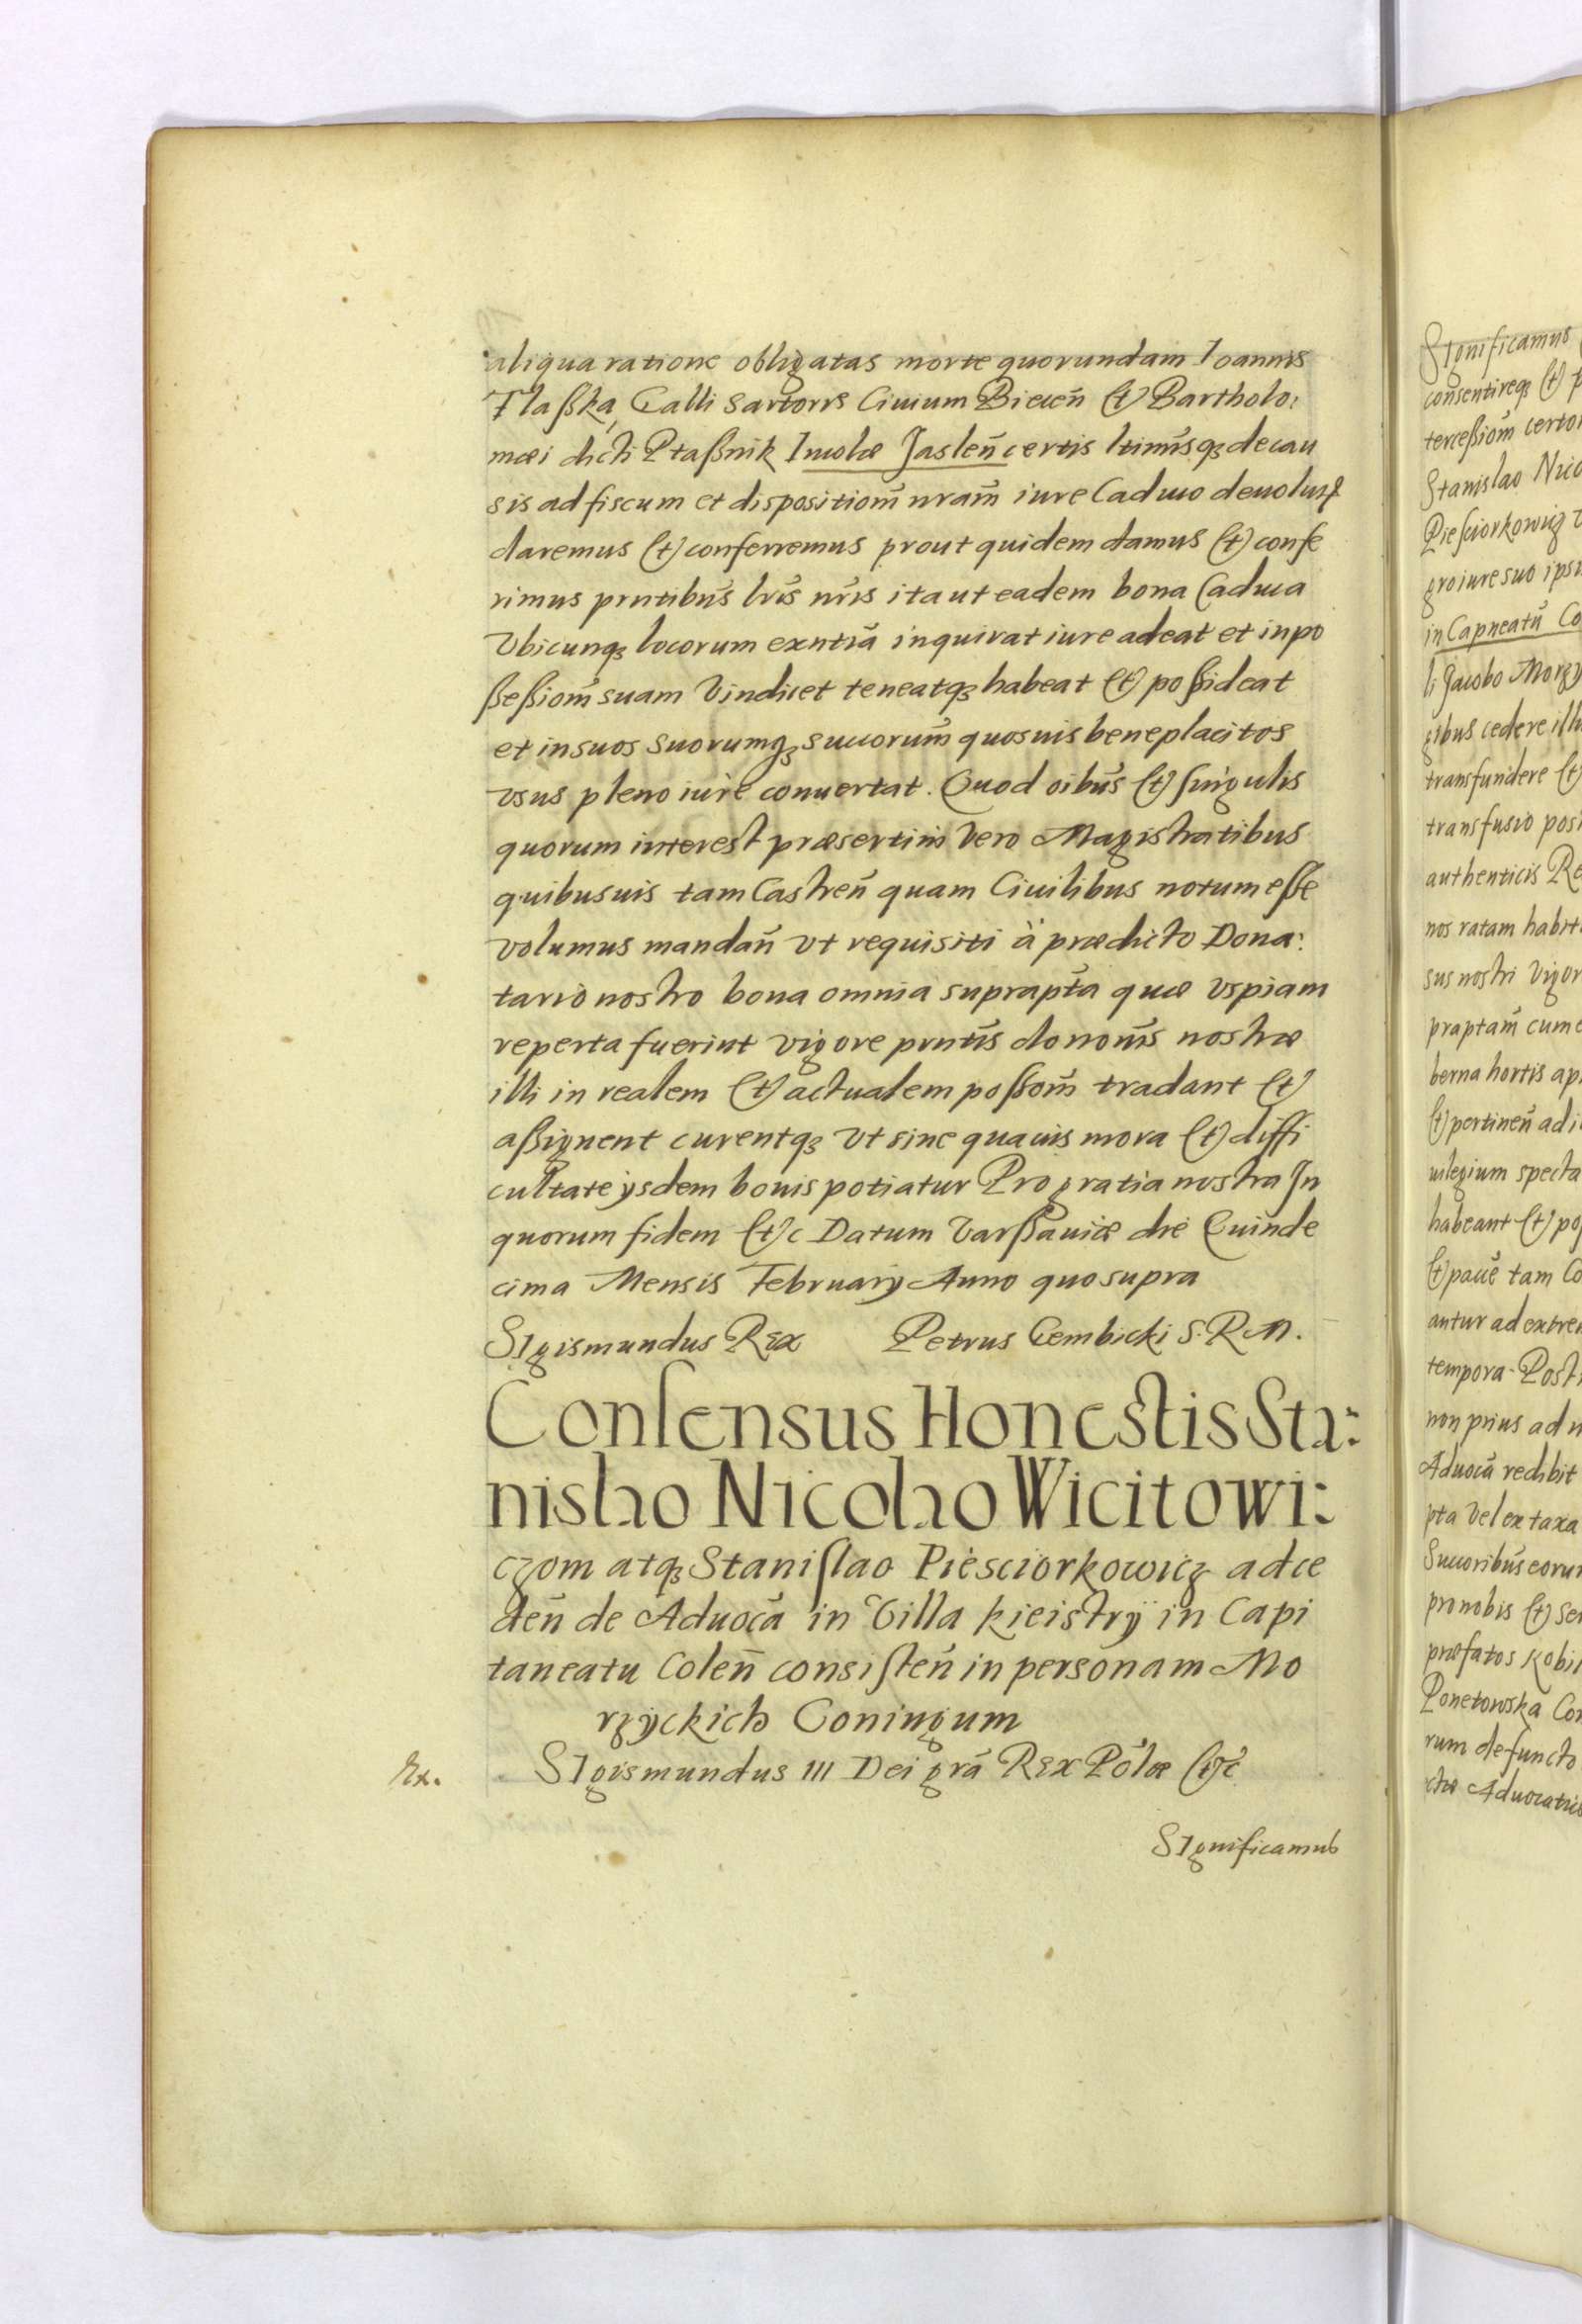 aliqua ratione obligatas morte quorundam Ioannis
Flaßka Galli Sartoris Ciuium Biecen̄ (et) Bartholo:
mæi dicti Ptaßnik Incolæ Jaslen̄ certis ltimīsqȝ de cau
sis ad fiscum et dispositiom̄ nram̄ iure Caduco deuolutꝝ
daremus (et) conferremus prout quidem damus (et) confe
rimus prntibus̄ lrīs nrīs ita ut eadem bona Caduca
Vbicunqȝ locorum exntiā inquirat iure adeat et in po
ßeßiom̄ suam Vindicet teneatqȝ habeat (et) poßideat
et in suos suorumqȝ succorum̄ quosuis beneplacitos
vsus pleno iure conuertat. Quod oibus̄ (et) singulis
quorum interest præsertim Vero Magistratibus
quibusuis tam Castren̄ quam Ciuilibus notum eße
volumus mandan̄ vt requisiti à prædicto Dona:
tario nostro bona omnia suprapt̄a quæ vspiam
reperta fuerint vigore prntīs dononīs nostræ
illi in realem (et) actualem poßom̄ tradant (et)
aßignent curentqȝ vt sine quauis mora (et) diffi
cultate ijsdem bonis potiatur Pro gratia nostra In
quorum fidem (et)c Datum Varßauiæ die Quinde
cima Mensis Februarij Anno quo supra
SIgismundus REx Petrus Gembicki S. R M.
Consensus Honestis Sta:
nislao Nicolao Wicitowi:
czom atqȝ Stanislao Piesciorkowicz ad ce
den̄ de Aduocā in Villa kieistrÿ in Capi
taneatu Colen̄ consisten̄ in personam Mo
rzÿckich Coniugum
Ex. SIgismundus III Dei grā REx Polæ (et)c
SIgnificamus
SIgnificamus
consentireqȝ (et) p
terceßiom̄ certor
Stanislao Nico
Piesciorkowicz v
gro iure suo ipsi
in Capneatū Co
li Jacobo Morzy
gibus cedere illu
transfundere (et)
transfusio posi
authenticis Re
nos ratam habit
sus nostri Vigor
praptam̄ cum e
berna hortis ap
(et) pertinen̄ ad i
uilegium specta
habeant (et) poß
(et) pacē tam Co
antur ad extre
tempora. Post
non prius ad n
Aduocā redibit
pta Vel ex taxa
Succoribus̄ eorum
pro nobis (et) Se
præfatos Kobi
Ponetowska Co
rum defuncto
ctæ Aduocatiæ